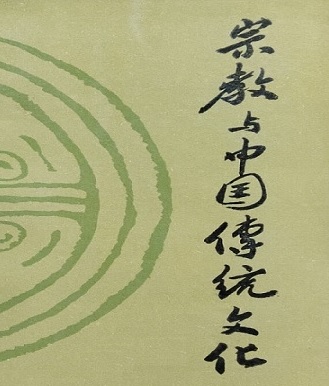 宗教与中国傳统文化